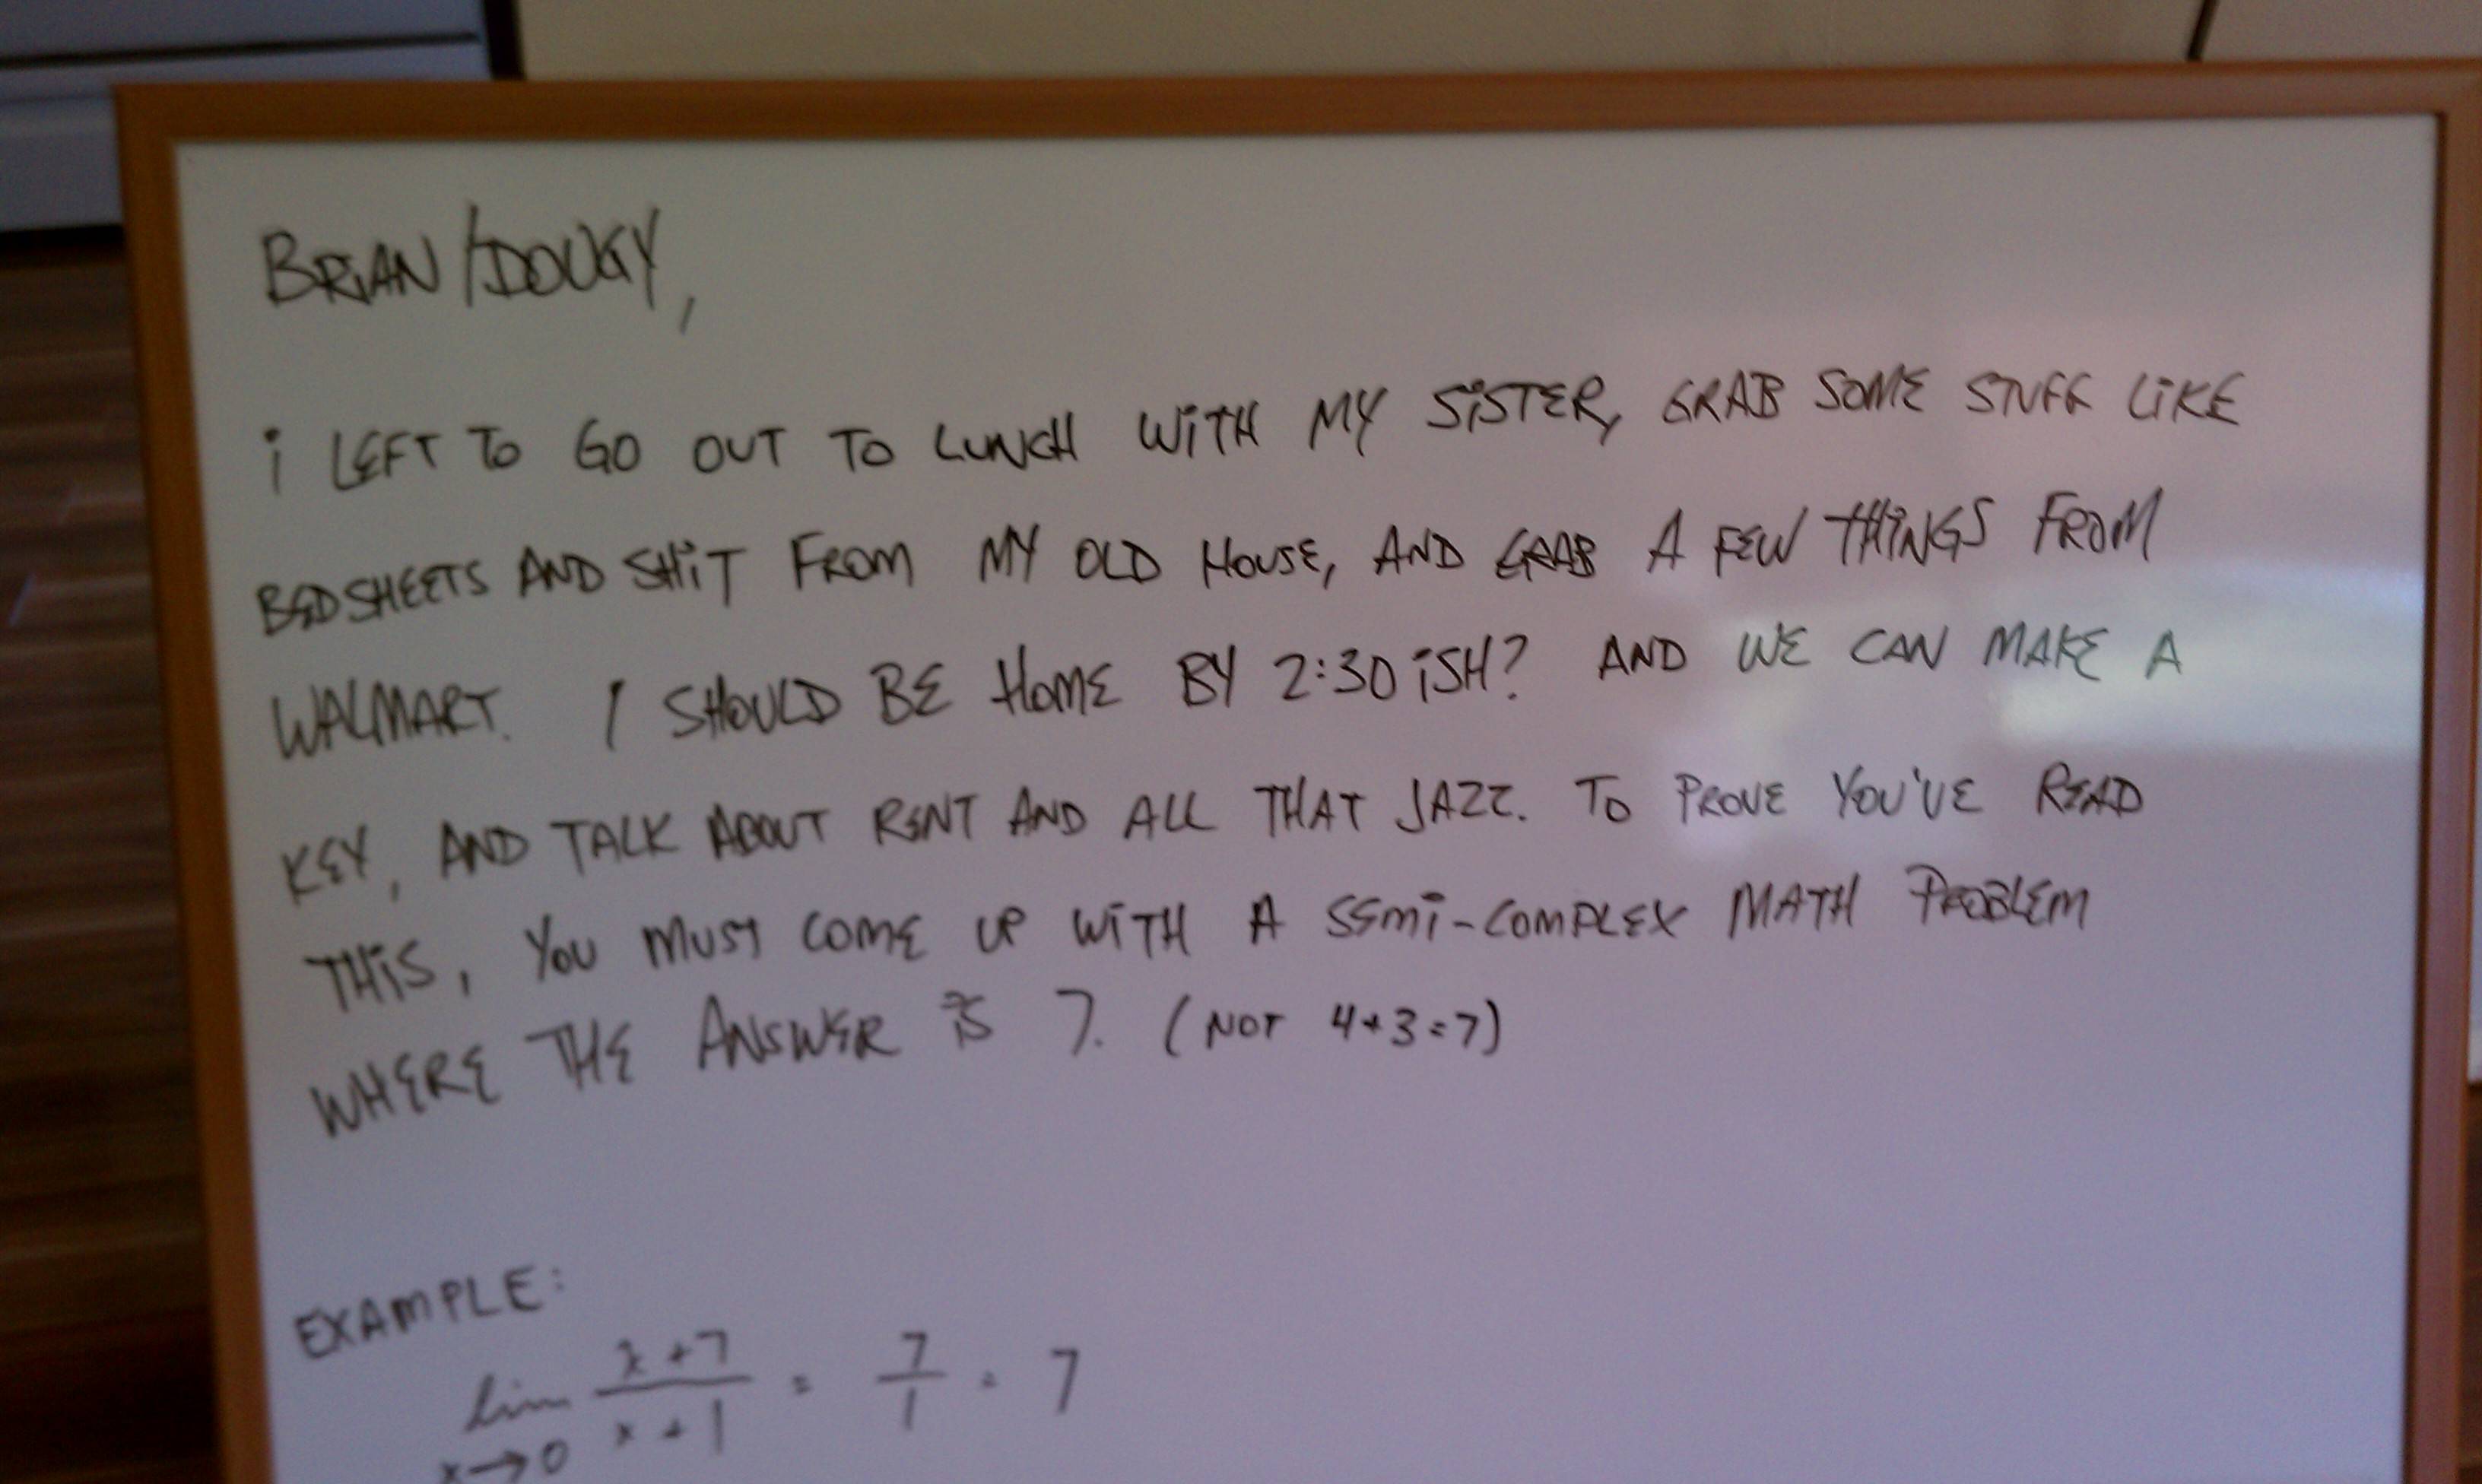 BRiAN/DOUGY,
i LEFT TO GO OUT TO LUNCH WiTH MY SiSTER, GRAB SOME STUFF LiKE
BEDSHEETS AND SHiT FROM MY OLD HOUSE, AND GRAB A FEW THiNGS FROM
WALMART. I SHOULD BE HOME BY 2:30 iSH? AND WE CAN MAKE A
KEY, AND TALK ABOUT RENT AND ALL THAT JAZZ. TO PROVE YOU'VE READ
THiS, YOU MUST COME UP WiTH A SEMi-COMPLEX MATH PROBLEM
WHERE THE ANSWER iS 7. (NOT 4+3=7)
EXAMPLE:
lim x→0 (x+7)/(x+1) = 7/1 = 7